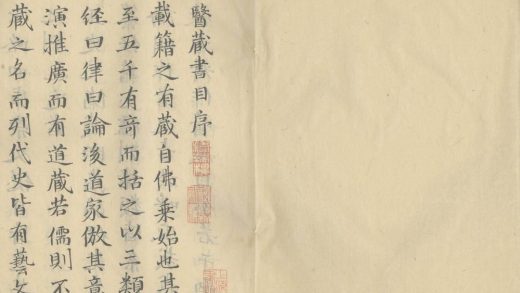 醫藏書目序
載籍之有藏自佛乘始也其
至五千有奇而括之以三類
經曰律曰論後道家倣其意
演推廣而有道藏若儒則不
藏之名而列代史皆有藝文